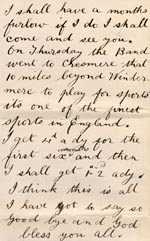 I shall have a months
furlow if I do I shall
come and see you.
On Thursday the Band
went to Cresmere that
10 miles beyond Winter
mere to play for sports
its one of the finest
sports in England.
I get 1s a dy for the
first six months and then
I shall get 1s-2d a dy.
I think this is all
I have got to say so
Good bye and God
bless you all.